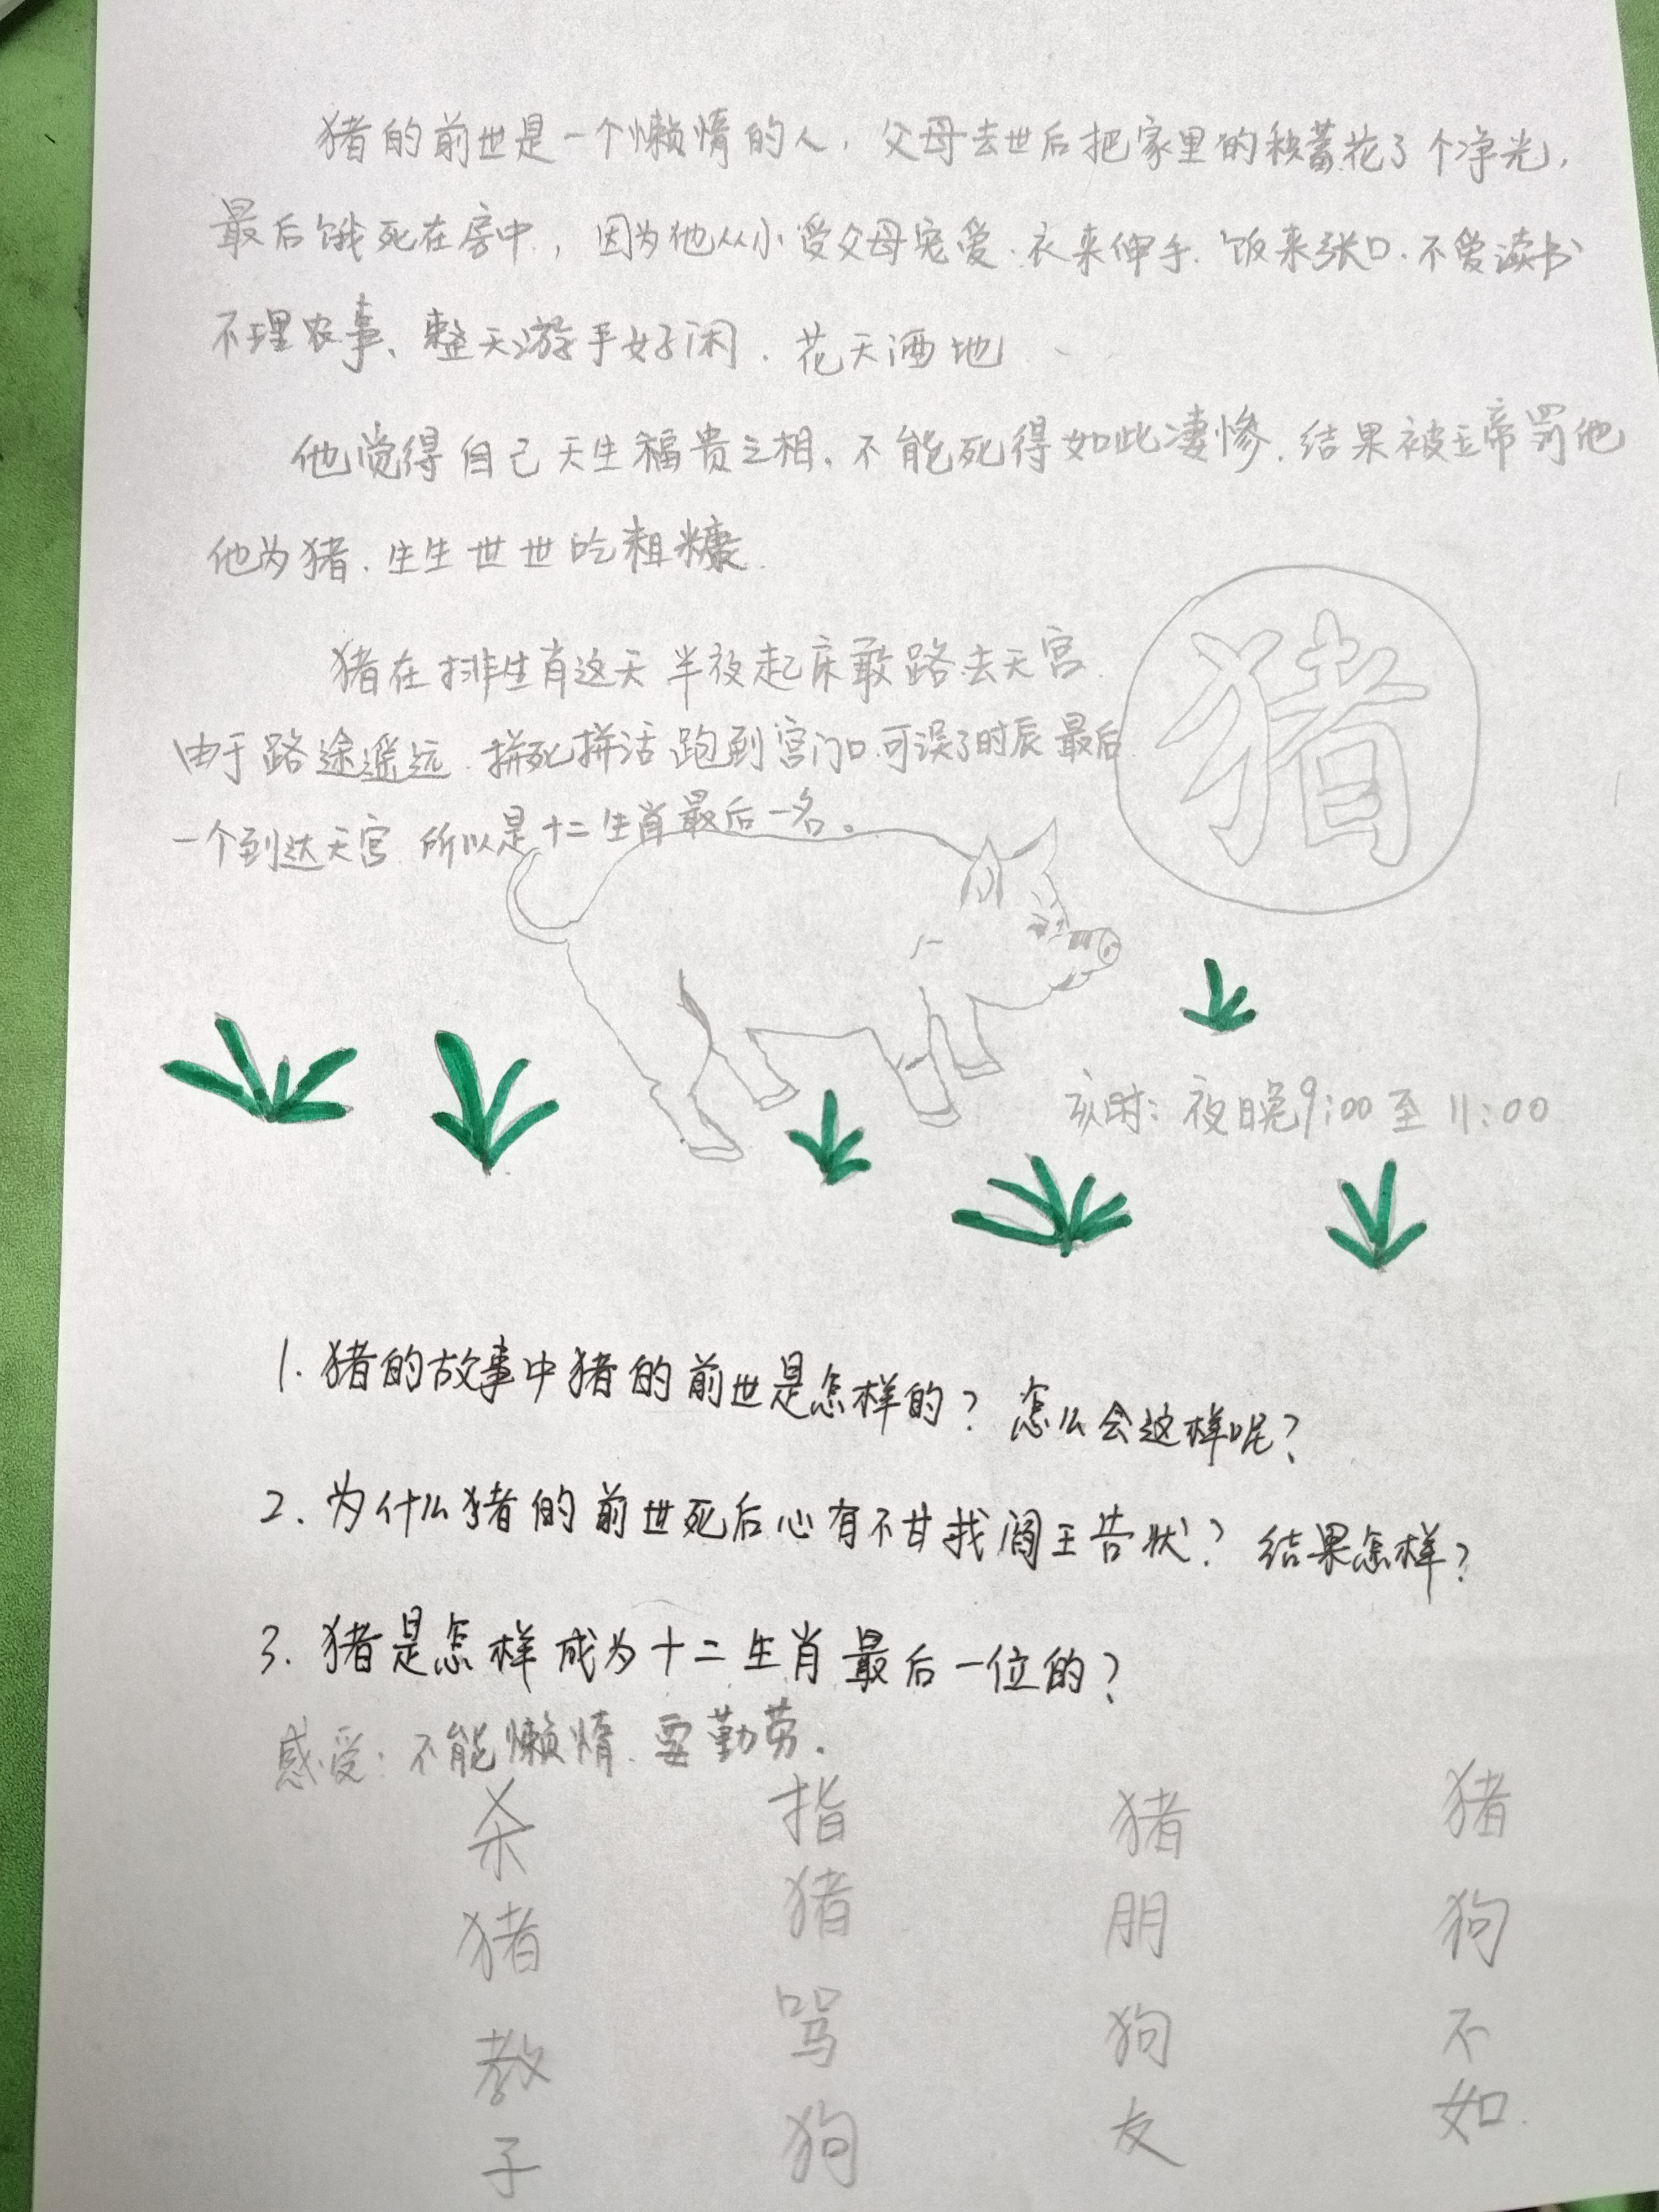 猪的前世是一个懒惰的人，父母去世后把家里的积蓄花了个净光，
最后饿死在房中，因为他从小受父母宠爱.衣来伸手.饭来张口.不爱读书
不理农事、整天游手好闲.花天酒地
他觉得自己天生福贵之相.不能死得如此凄惨.结果被玉帝罚他
他为猪.生生世世吃粗糠.
猪在排生肖这天半夜起床敢路去天宫.
由于路途遥远.拼死拼活跑到宫门口.可误了时辰最后
一个到达天宫 所以是十二生肖最后一名。
猪
亥时：夜晚9:00至11:00
1.猪的故事中猪的前世是怎样的？怎么会这样呢？
2.为什么猪的前世死后心有不甘找阎王告状？结果怎样？
3.猪是怎样成为十二生肖最后一位的？
感受：不能懒惰.要勤劳.
杀猪教子
指猪骂狗
猪朋狗友
猪狗不如.